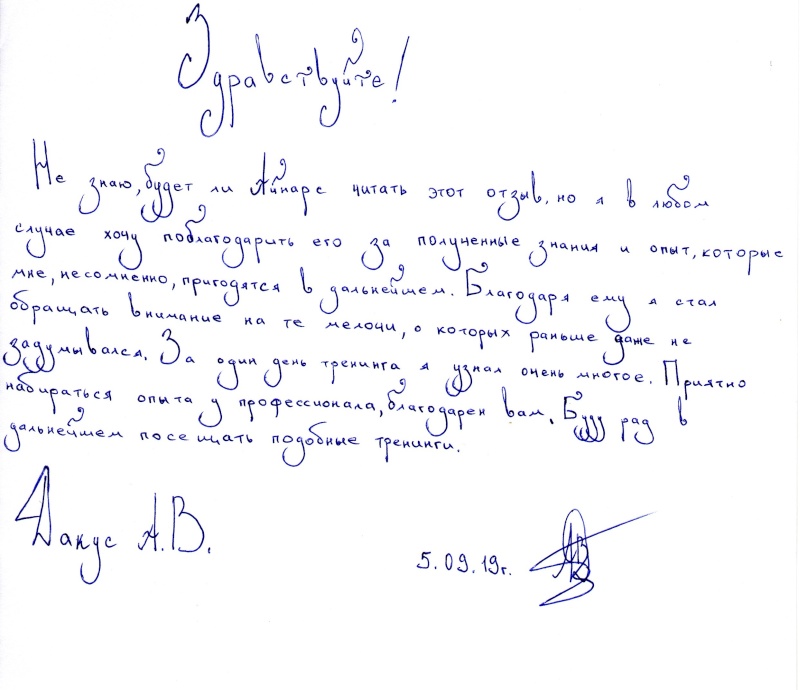 Здравствуйте!
Не знаю, будет ли Айнарс читать этот отзыв, но я в любом
случае хочу поблагодарить его за полученные знания и опыт, которые
мне, несомненно, пригодятся в дальнейшем. Благодаря ему я стал
обращать внимание на те мелочи, о которых раньше даже не
задумывался. За один день тренинга я узнал очень многое. Приятно
набираться опыта у профессионала, благодарен вам. Буду рад в
дальнейшем посещать подобные тренинги.
Дакус А.В.
5.09.19г.